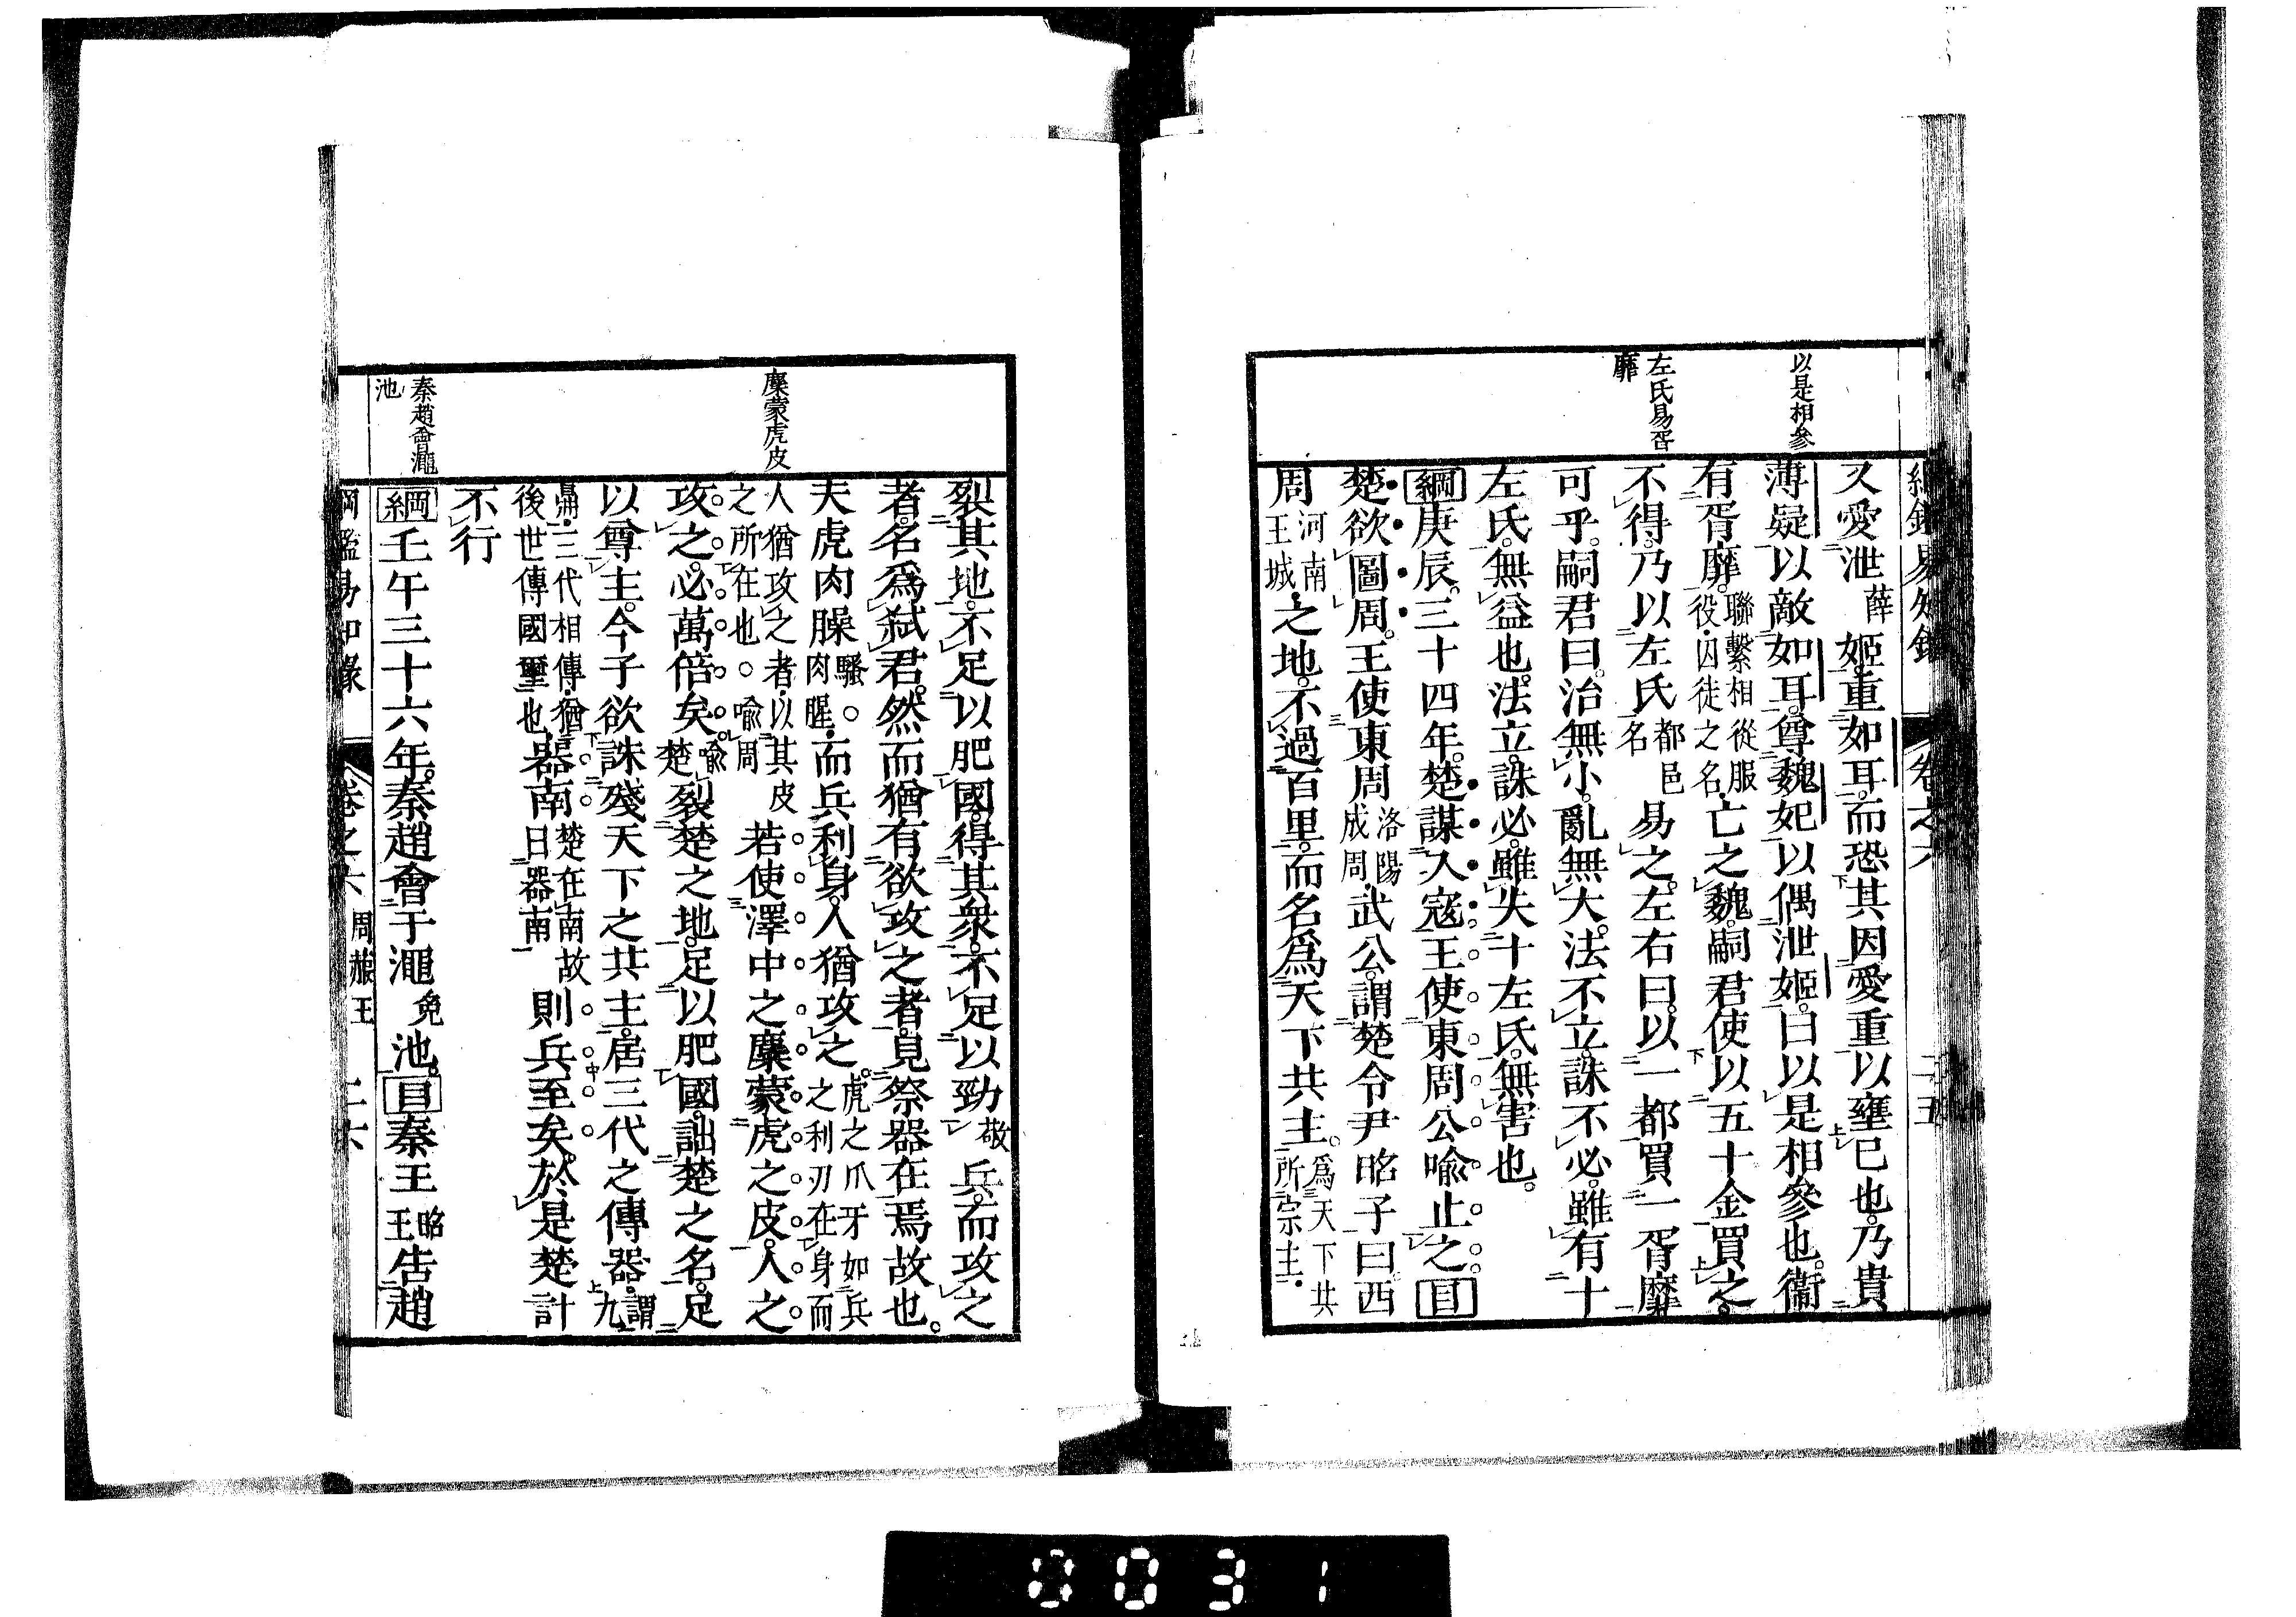 綱鑑易知錄 卷之六 二五
以是相參
左氏易胥
靡
又愛泄薛姬重如耳而恐其因愛重以壅已也乃貴
薄疑以敵如耳尊魏妃以偶泄姬曰以是相參也衞
有胥靡聯繫相從服役囚徒之名亡之魏嗣君使以五十金買之
不得乃以左氏都邑名易之左右曰以一都買一胥靡
可乎嗣君曰治無小亂無大法不立誅不必雖有十
左氏無益也法立誅必雖失十左氏無害也
綱庚辰三十四年楚謀入寇王使東周公喻止之目
楚欲圖周王使東周洛陽成周武公謂楚令尹昭子曰西
周河南王城之地不過百里而名爲天下共主爲天下共所宗主
麋蒙虎皮
秦趙會澠
池
裂其地不足以肥國得其衆不足以勁敬兵而攻之
者名爲弑君然而猶有欲攻之者見祭器在焉故也
夫虎肉臊騷肉腥而兵利身人猶攻之虎之爪牙如兵之利刃在身而
人猶攻之者以其皮之所在也喻周若使澤中之麋蒙虎之皮人之
攻之必萬倍矣喻楚裂楚之地足以肥國詘楚之名足
以尊主今子欲誅殘天下之共主居三代之傳器謂九
鼎三代相傳猶後世傳國璽也器南楚在南故曰器南則兵至矣於是楚計
不行
綱壬午三十六年秦趙會于澠免池目秦王昭王告趙
綱鑑易知錄 卷之六 周赧王 二六
0031